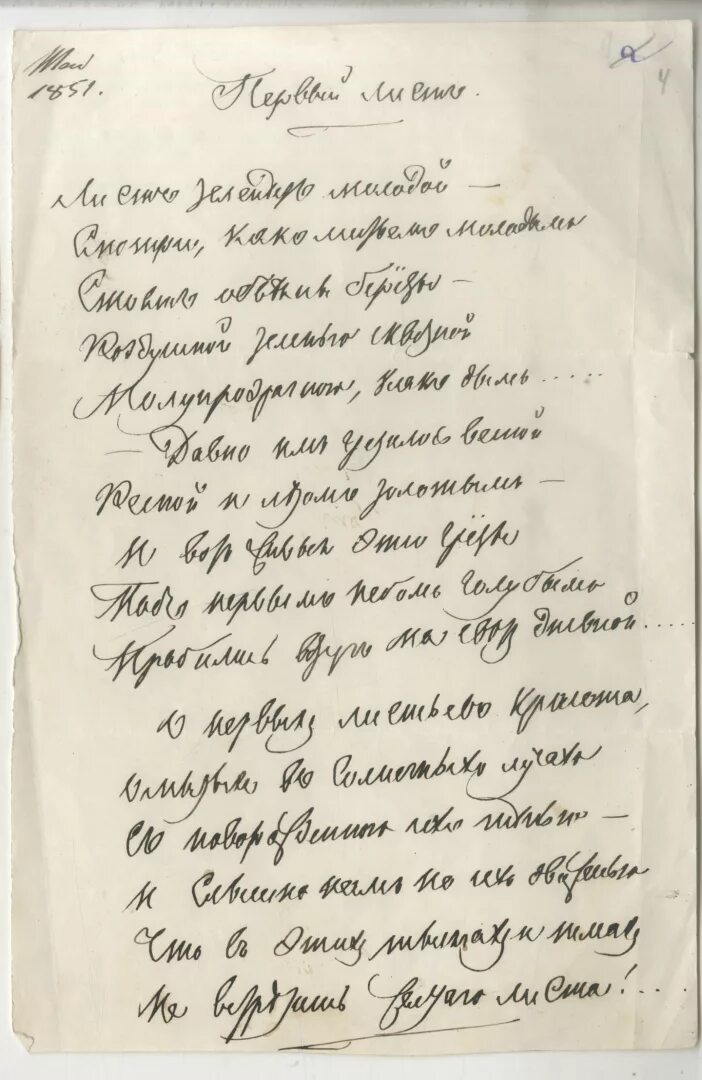 Май
1851.
2
4
Первый листъ.
Листъ зеленѣетъ молодой —
Смотри, какъ листьемъ молодымъ
Стоятъ обвѣяны берёзы —
Воздушной зеленью сквозной
Полупрозрачною, какъ дымъ.....
— Давно имъ грезилось весной
Весной и лѣтомъ золотымъ —
И вотъ живыя эти грёзы
Подъ первымъ небомъ голубымъ
Пробились вдругъ на свѣтъ дневной.....
О первыхъ листьевъ красота,
Омытыхъ въ солнечныхъ лучахъ
Съ новорожденною ихъ тѣнью —
И слышно намъ по ихъ движенью
Что въ этихъ тысячахъ и тьмахъ
Не встрѣтишь желтаго листа!...